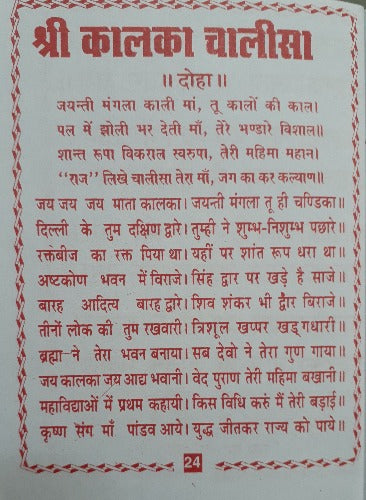 श्री कालका चालीसा
॥ दोहा ॥
जयन्ती मंगला काली मां, तू कालों की काल।
पल में झोली भर देती माँ, तेरे भण्डारे विशाल॥
शान्त रूपा विकराल स्वरुपा, तेरी महिमा महान।
"राज" लिखे चालीसा तेरा माँ, जग का कर कल्याण॥
जय जय जय माता कालका। जयन्ती मंगला तू ही चण्डिका॥
दिल्ली के तुम दक्षिण द्वारे। तुम्ही ने शुम्भ-निशुम्भ पछारे॥
रक्तबीज का रक्त पिया था। यहीं पर शांत रूप धरा था॥
अष्टकोण भवन में विराजे। सिंह द्वार पर खड़े है साजे॥
बारह आदित्य बारह द्वारे। शिव शंकर भी द्वार बिराजे॥
तीनों लोक की तुम रखवारी। त्रिशूल खप्पर खड्गधारी॥
ब्रह्मा-ने तेरा भवन बनाया। सब देवो ने तेरा गुण गाया॥
जय कालका जय आद्य भवानी। वेद पुराण तेरी महिमा बखानी॥
महाविद्याओं में प्रथम कहायी। किस विधि करुं मैं तेरी बड़ाई॥
कृष्ण सेंग माँ पांडव आये। युद्ध जीतकर राज्य को पाये॥
24